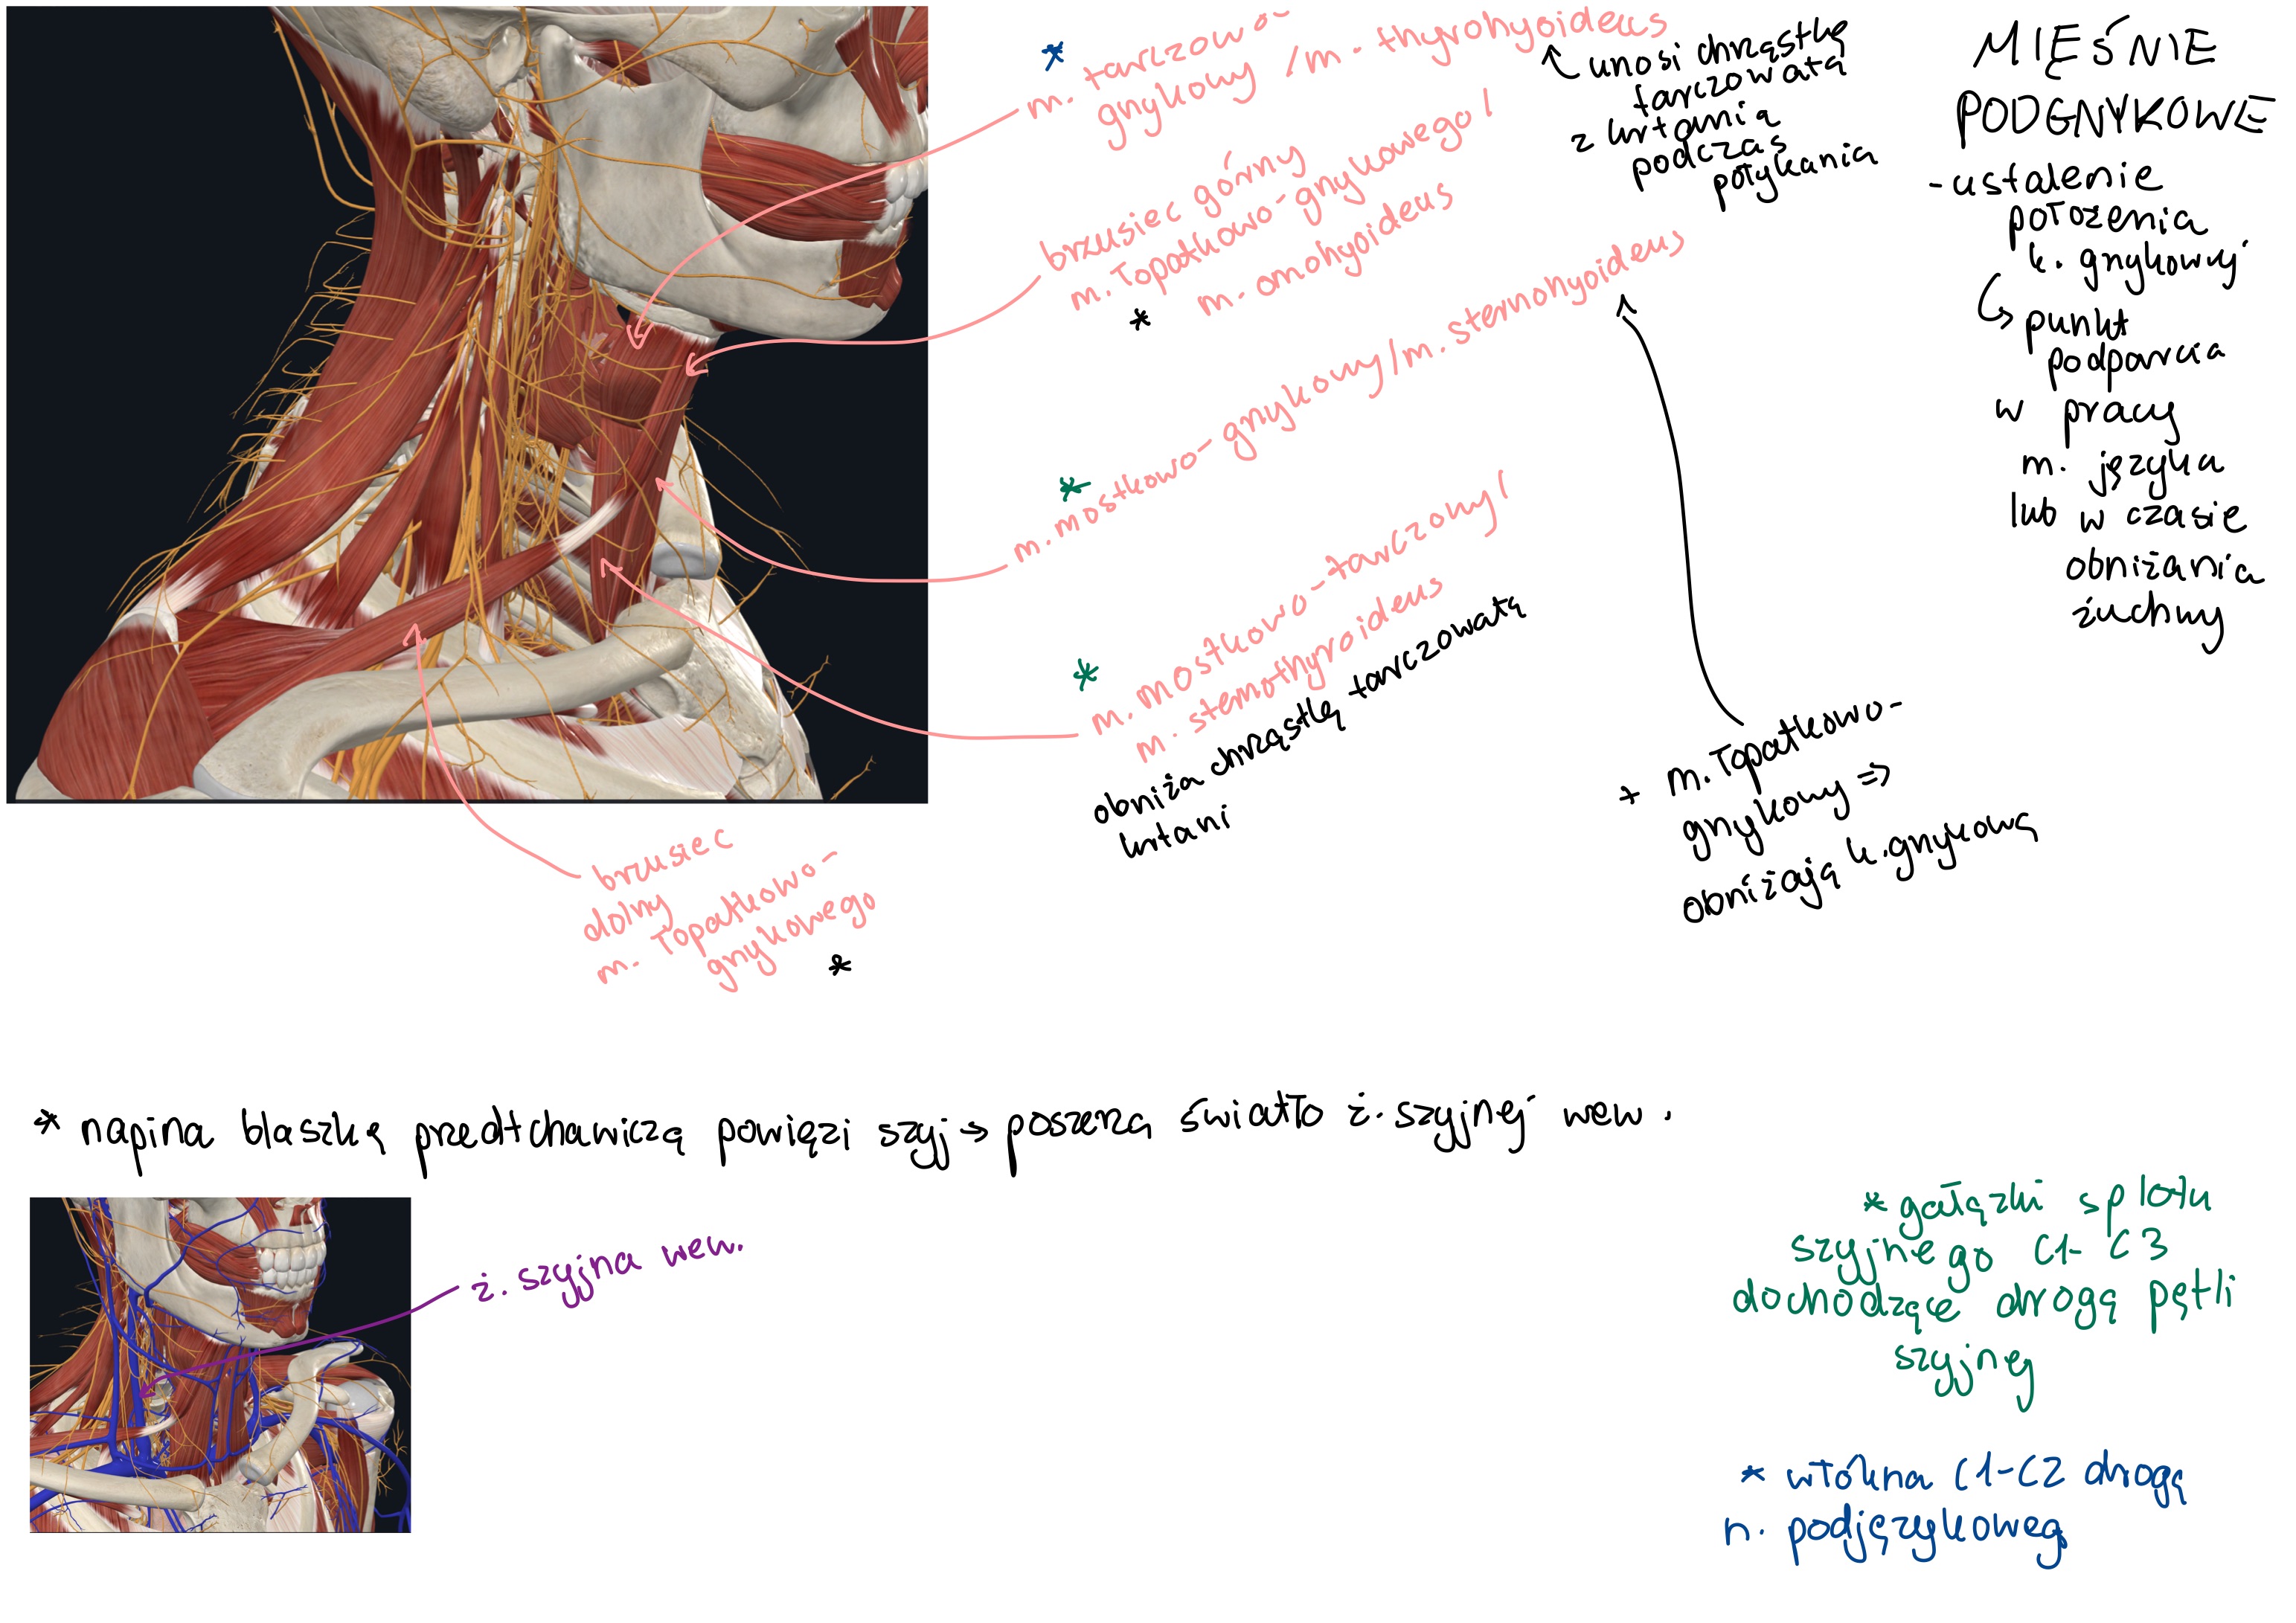 MIĘŚNIE
PODGNYKOWE
- ustalenie
położenia
k. gnykowej
↳ punkt
podparcia
w pracy
m. języka
lub w czasie
obniżania
żuchwy
* m. tarczowo-
gnykowy / m. thyrohyoideus
unosi chrząstkę
tarczowatą
z krtania
podczas
połykania
brzusiec górny
m. łopatkowo-gnykowego /
* m. omohyoideus
* m. mostkowo-gnykowy / m. sternohyoideus
* m. mostkowo-tarczowy /
m. sternothyroideus
obniża chrząstkę tarczowatą
krtani
+ m. łopatkowo-
gnykowy ⇒
obniżają k. gnykową
brzusiec
dolny
m. łopatkowo-
gnykowego
*
* napina blaszkę przedtchawiczą powięzi szyj → poszerza światło ż. szyjnej wew.
ż. szyjna wew.
* gałązki splotu
szyjnego C1-C3
dochodzące drogą pętli
szyjnej
* włókna C1-C2 drogą
n. podjęzykowego